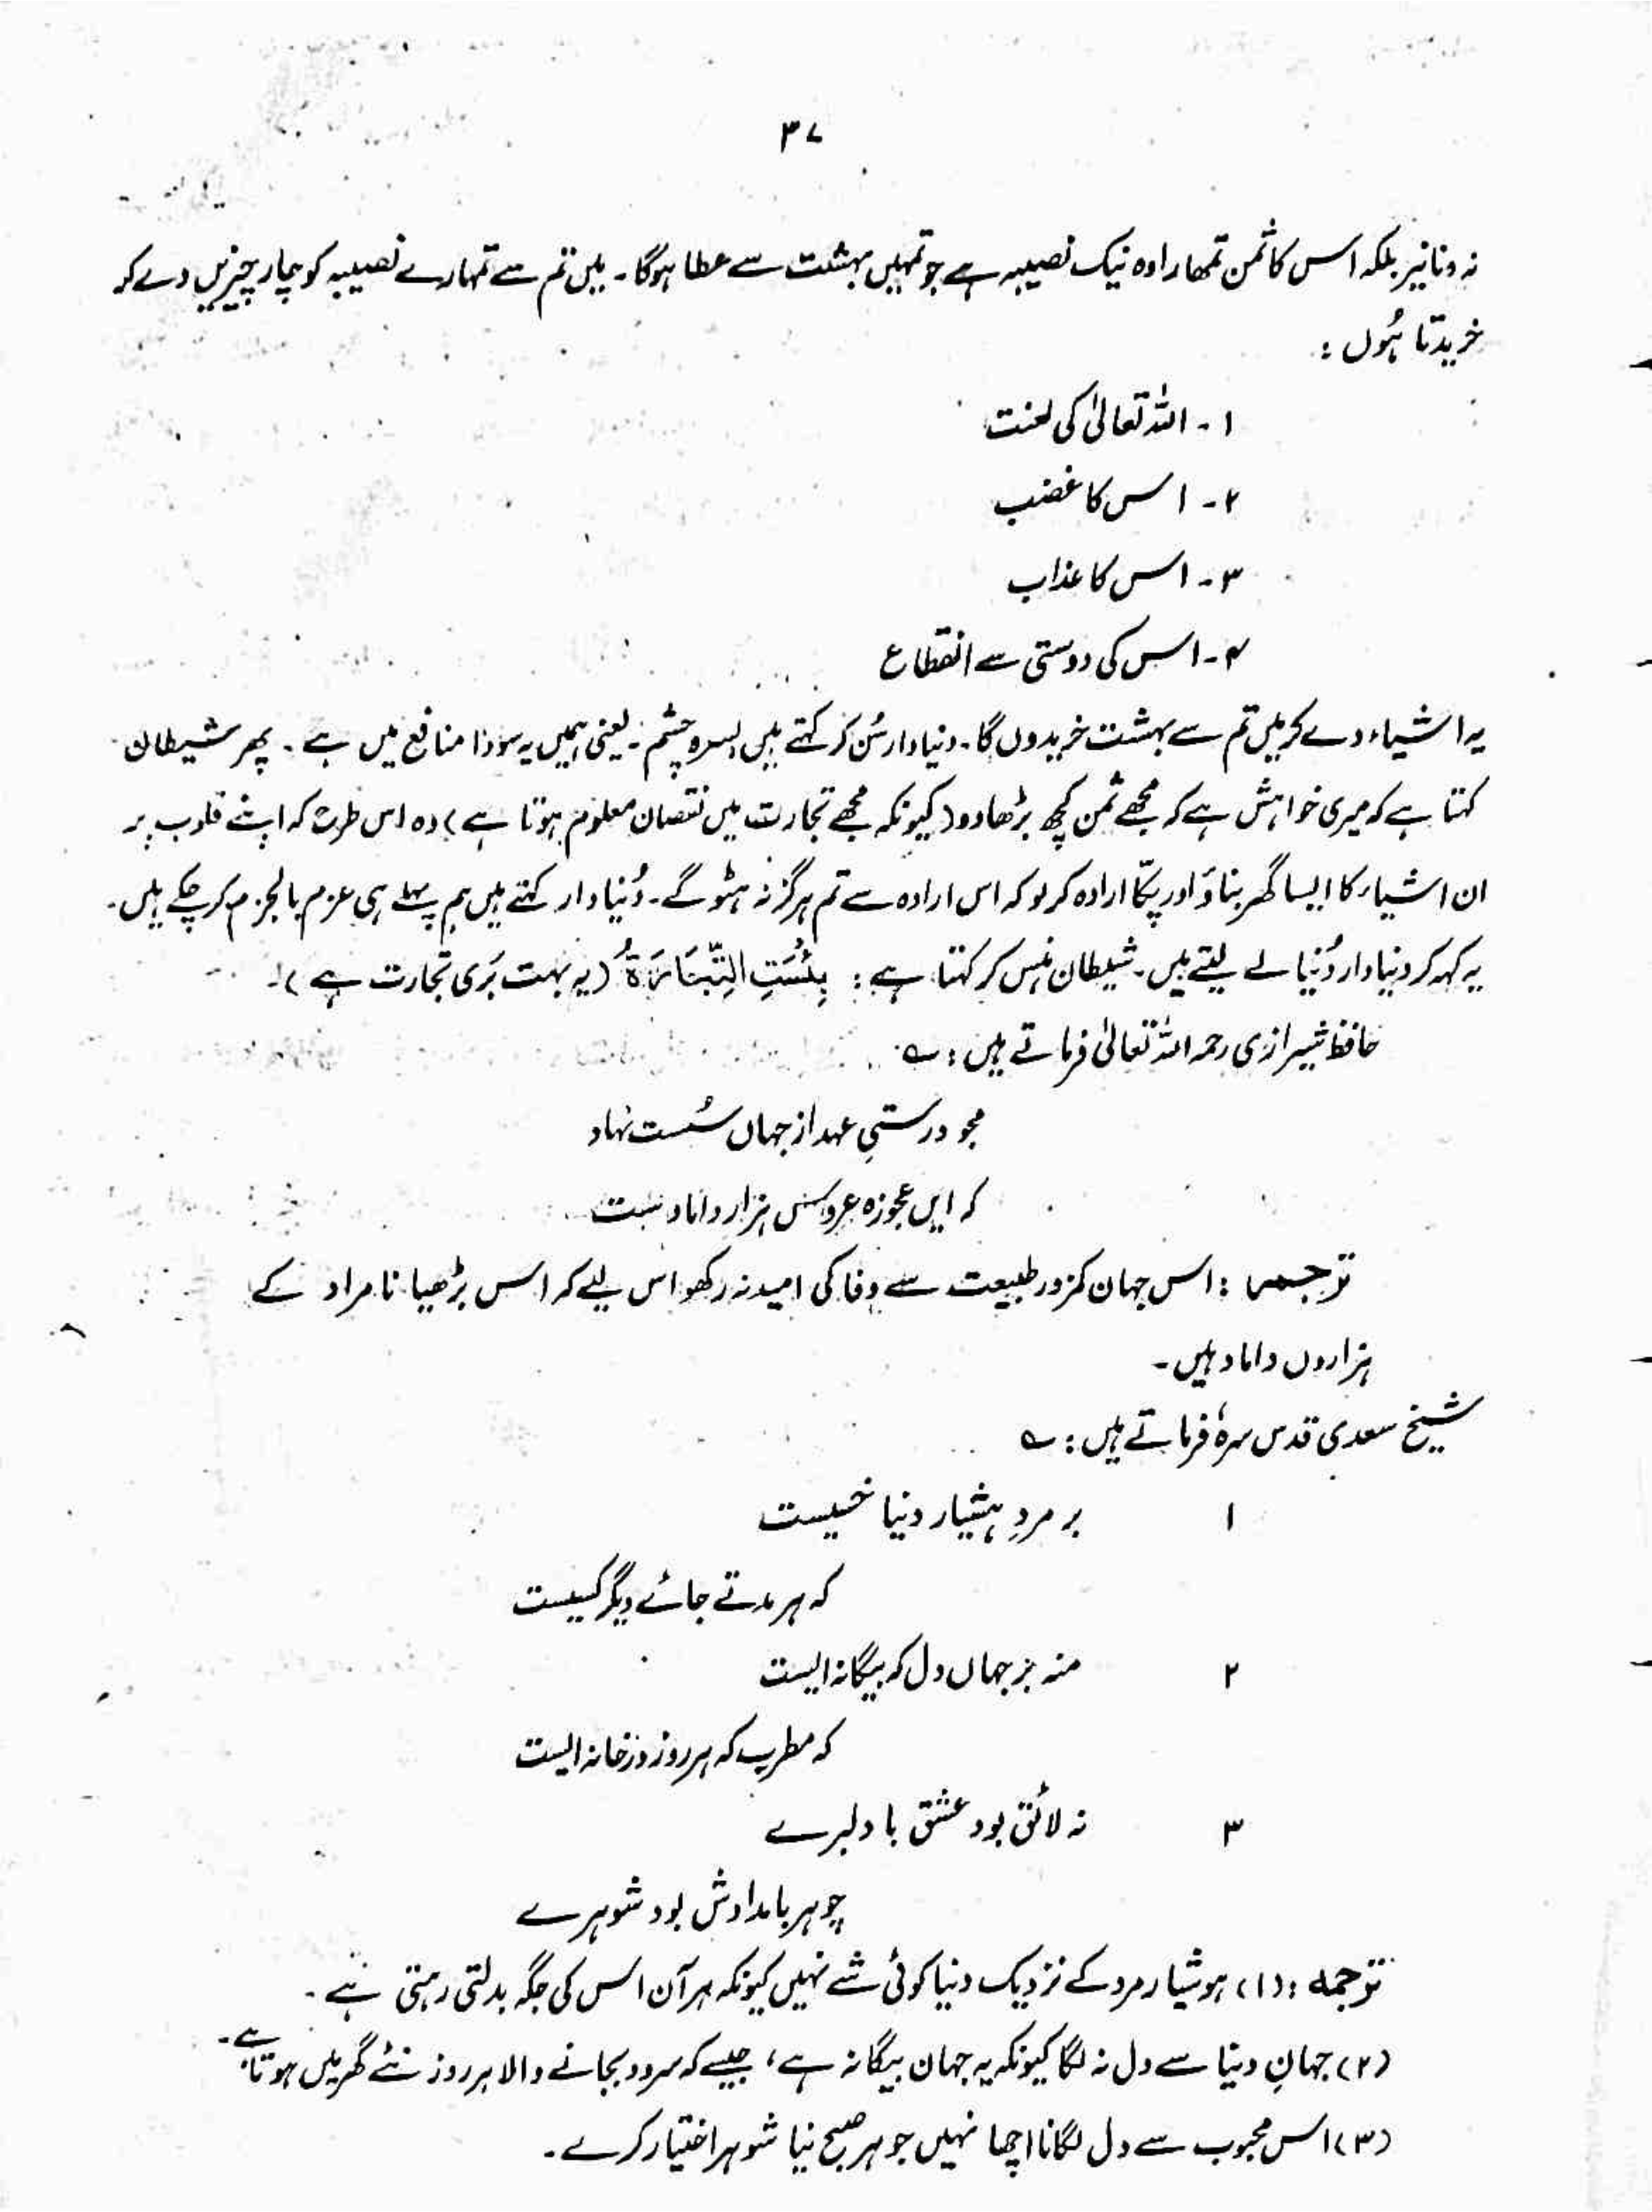 ۳۷
نہ دنانیر بلکہ اس کا ثمن تمھارا وہ نیک نصیبہ ہے جو تمہیں بہشت سے عطا ہوگا۔ میں تم سے تمہارے نصیبہ کو چار چیزیں دے کر
خریدتا ہُوں :
۱ - اللہ تعالیٰ کی لعنت
۲ - اس کا غضب
۳ - اس کا عذاب
۴ - اس کی دوستی سے انقطاع
یہ اشیاء دے کر میں تم سے بہشت خریدوں گا۔ دنیا دار سُن کر کہتے ہیں بسر و چشم۔ یعنی ہمیں یہ سودا منافع میں ہے۔ پھر شیطان
کہتا ہے کہ میری خواہش ہے کہ مجھے ثمن کچھ بڑھا دو (کیونکہ مجھے تجارت میں نقصان معلوم ہوتا ہے) وہ اس طرح کہ اپنے قلوب پر
ان اشیاء کا ایسا گھر بناؤ اور پکّا ارادہ کر لو کہ اس ارادہ سے تم ہرگز نہ ہٹو گے۔ دُنیا دار کہتے ہیں ہم پہلے ہی عزم بالجزم کر چکے ہیں۔
یہ کہہ کر دنیا دار دُنیا لے لیتے ہیں۔ شیطان ہنس کر کہتا ہے : بِئْسَتِ التِّجَارَةُ (یہ بہت بُری تجارت ہے)۔
حافظ شیرازی رحمہ اللہ تعالیٰ فرماتے ہیں : ؎
مجو درستیِ عہد از جہاں سُست نہاد
کہ ایں عجوزہ عروس ہزار داماد ست
ترجمہ : اس جہان کمزور طبیعت سے وفا کی امید نہ رکھو اس لیے کہ اس بڑھیا نامراد کے
ہزاروں داماد ہیں۔
شیخ سعدی قدس سرہٗ فرماتے ہیں : ؎
۱ بر مردِ ہشیار دنیا خسیست
کہ ہر مدتے جائے دیگر کسیست
۲ منہ بر جہاں دل کہ بیگانہ ایست
کہ مطرب کہ ہر روز در خانہ ایست
۳ نہ لائق بود عشق با دلبرے
چو ہر بامدادش بود شوہرے
ترجمہ : (۱) ہوشیار مرد کے نزدیک دنیا کوئی شے نہیں کیونکہ ہر آن اس کی جگہ بدلتی رہتی ہے۔
(۲) جہانِ دنیا سے دل نہ لگا کیونکہ یہ جہان بیگانہ ہے، جیسے کہ سرود بجانے والا ہر روز نئے گھر میں ہوتا ہے۔
(۳) اس محبوب سے دل لگانا اچھا نہیں جو ہر صبح نیا شوہر اختیار کرے۔